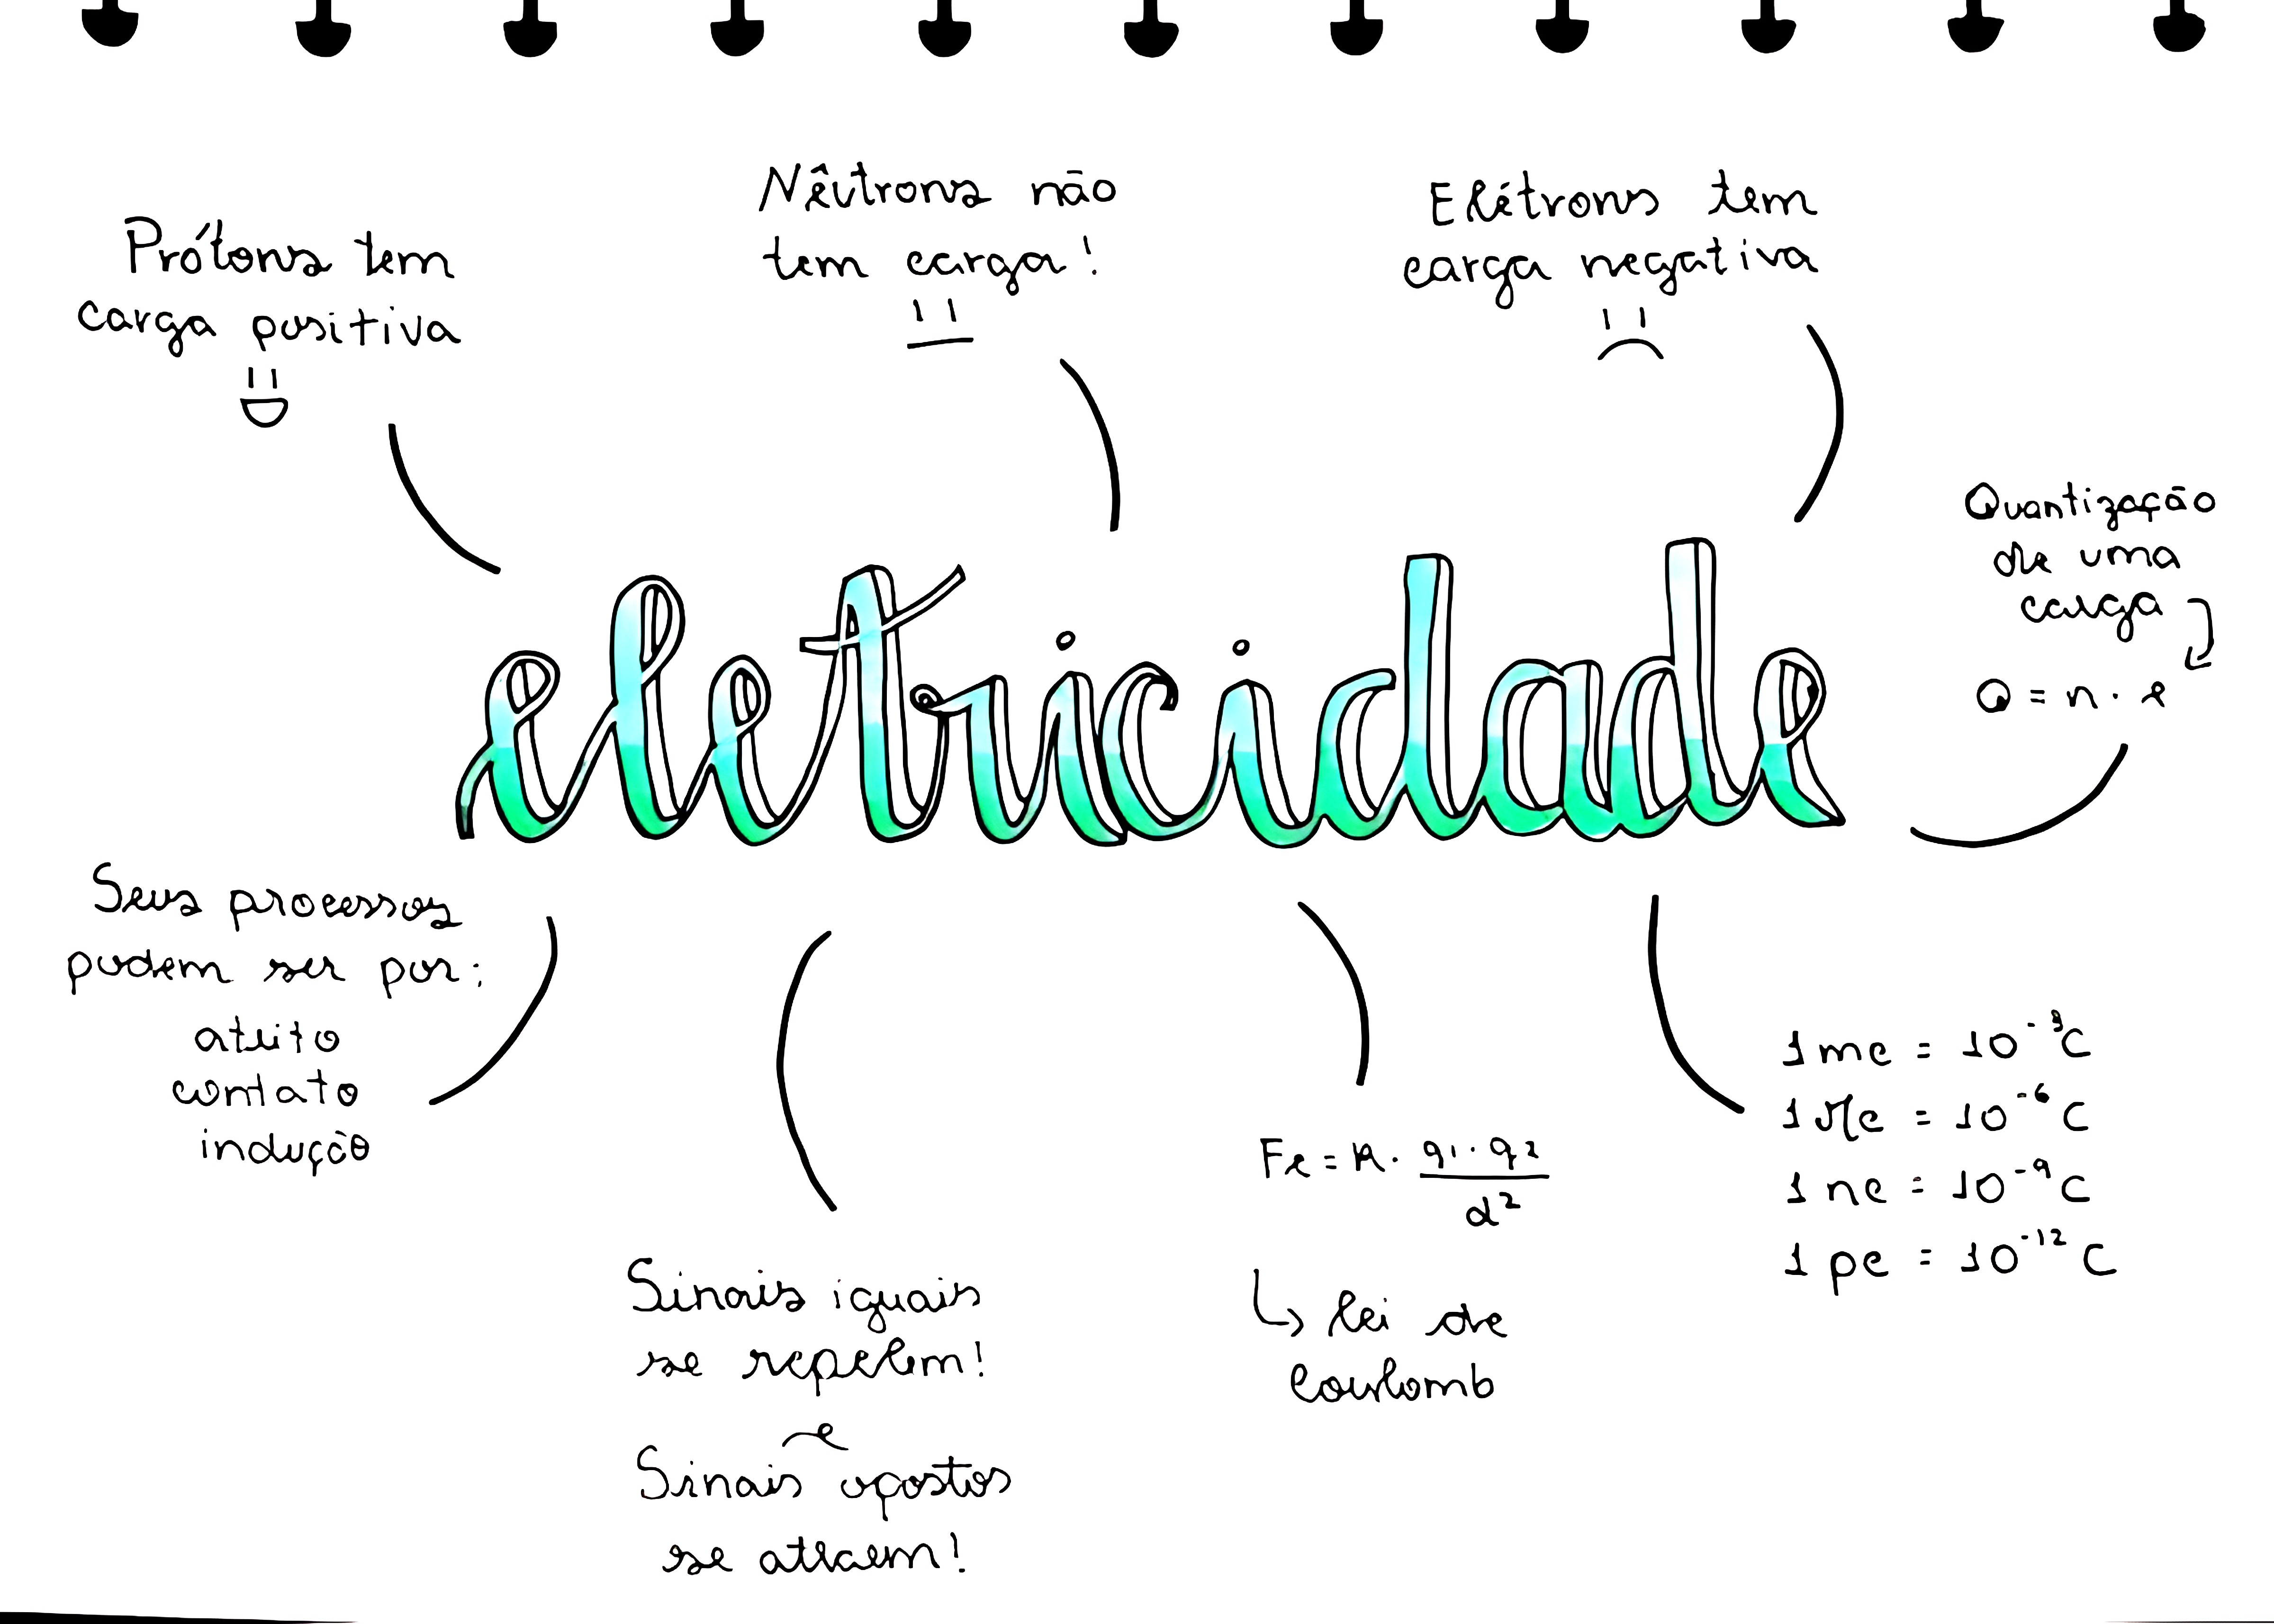 Prótons tem
carga positiva
Nêutrons não
tem carga!
Elétrons tem
carga negativa
Quantização
de uma
carga
Q = n · e
eletricidade
Seus processos
podem ser por:
atrito
contato
indução
Sinais iguais
se repelem!
e
Sinais opostos
se atraem!
Fe = K · q1 · q2
d²
↳ lei de
coulomb
1 mc = 10⁻³C
1 μc = 10⁻⁶C
1 nc = 10⁻⁹C
1 pc = 10⁻¹²C